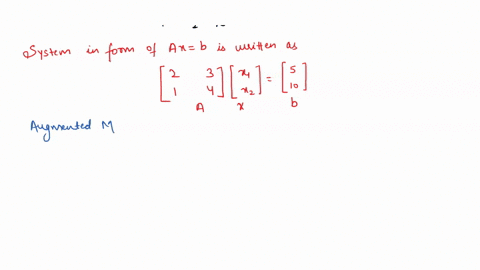 System in form of Ax=b is written as
[2 3] [x1] = [5]
[1 4] [x2] [10]
A x b
Augmented M